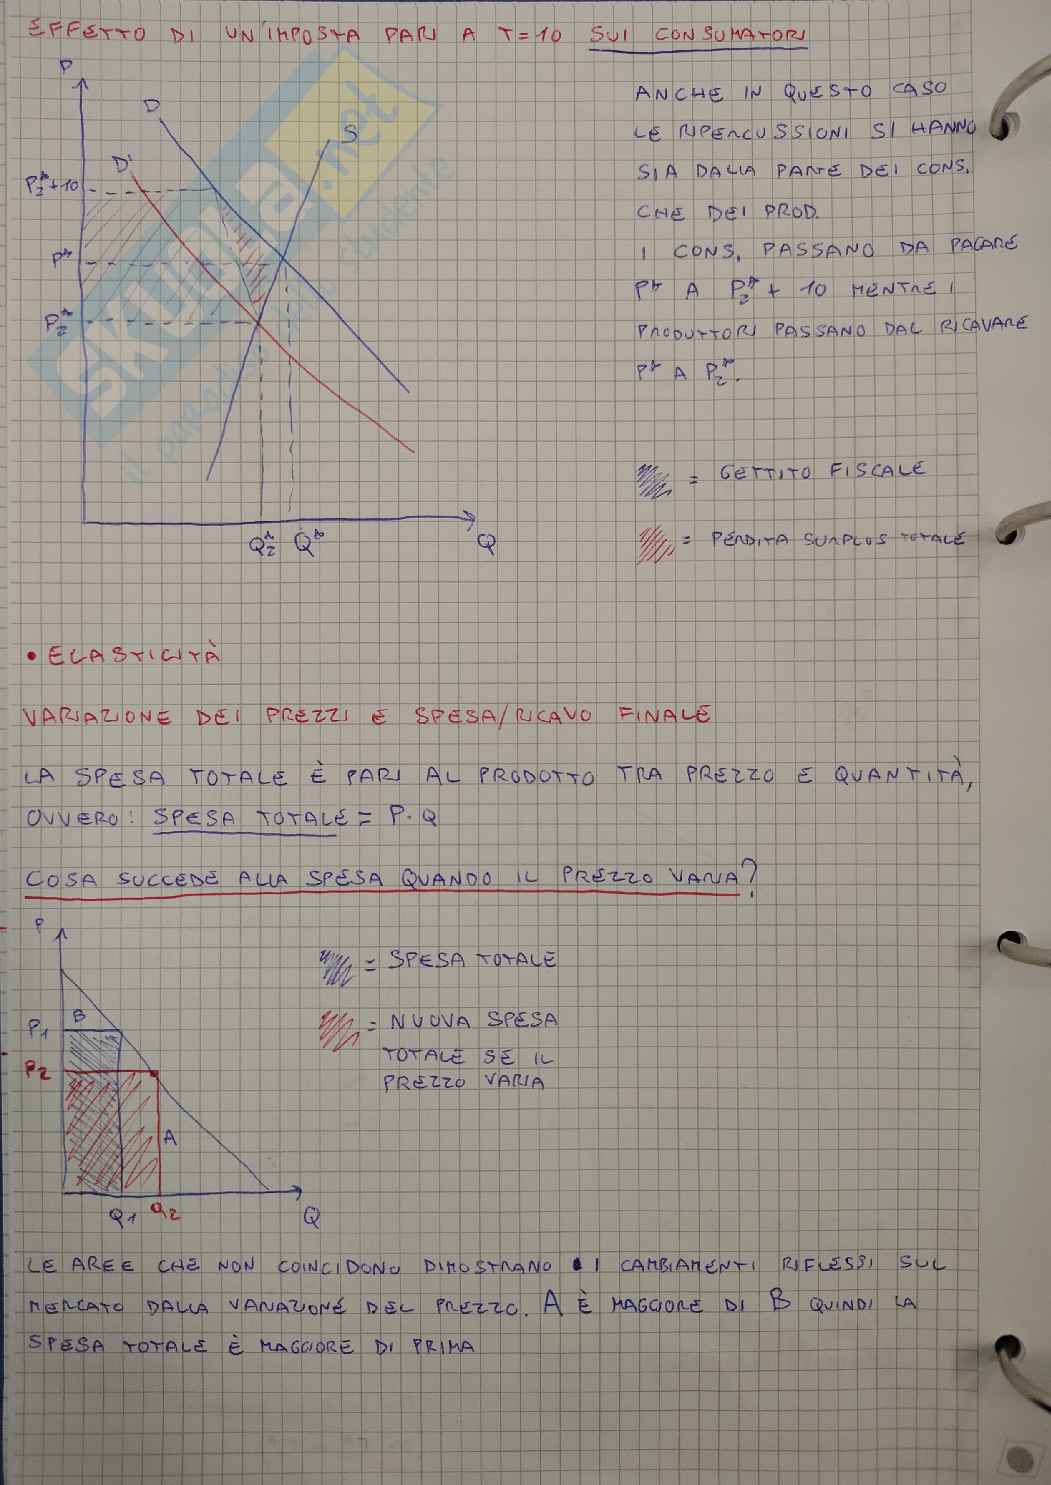 EFFETTO DI UN'IMPOSTA PARI A T=10 SUI CONSUMATORI
P
D
S
D'
P₂*+10
P*
P₂*
Q₂* Q* Q
ANCHE IN QUESTO CASO
LE RIPERCUSSIONI SI HANNO
SIA DALLA PARTE DEI CONS.
CHE DEI PROD.
I CONS. PASSANO DA PAGARE
P* A P₂* + 10 MENTRE I
PRODUTTORI PASSANO DAL RICAVARE
P* A P₂*.
= GETTITO FISCALE
= PERDITA SURPLUS TOTALE
SKUOLA.net
• ELASTICITÀ
VARIAZIONE DEI PREZZI E SPESA/RICAVO FINALE
LA SPESA TOTALE È PARI AL PRODOTTO TRA PREZZO E QUANTITÀ,
OVVERO: SPESA TOTALE = P·Q
COSA SUCCEDE ALLA SPESA QUANDO IL PREZZO VARIA?
P
B
P1
P2
A
Q1 Q2 Q
= SPESA TOTALE
= NUOVA SPESA
TOTALE SE IL
PREZZO VARIA
LE AREE CHE NON COINCIDONO DIMOSTRANO I CAMBIAMENTI RIFLESSI SUL
MERCATO DALLA VARIAZIONE DEL PREZZO. A È MAGGIORE DI B QUINDI LA
SPESA TOTALE È MAGGIORE DI PRIMA